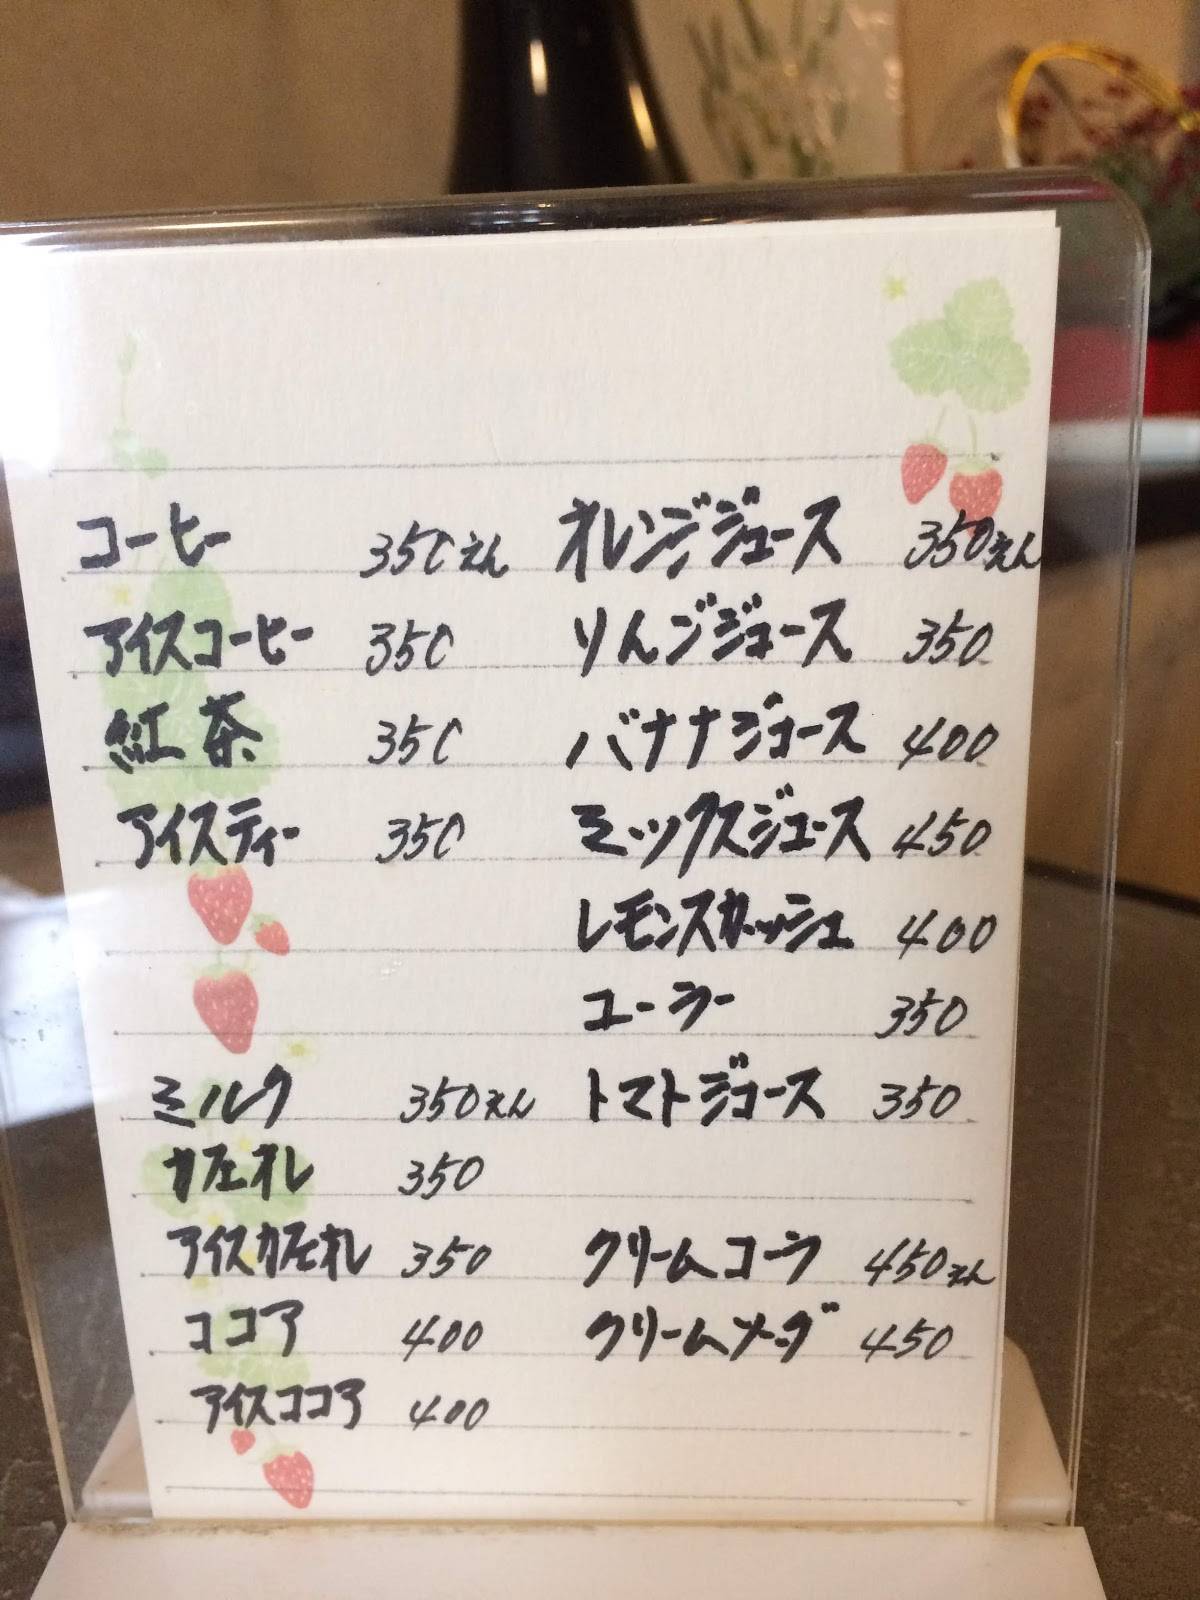 コーヒー 350えん
アイスコーヒー 350
紅茶 350
アイスティー 350
ミルク 350えん
カフェオレ 350
アイスカフェオレ 350
ココア 400
アイスココア 400
オレンジジュース 350えん
りんごジュース 350
バナナジュース 400
ミックスジュース 450
レモンスカッシュ 400
コーラー 350
トマトジュース 350
クリームコーラ 450えん
クリームソーダ 450